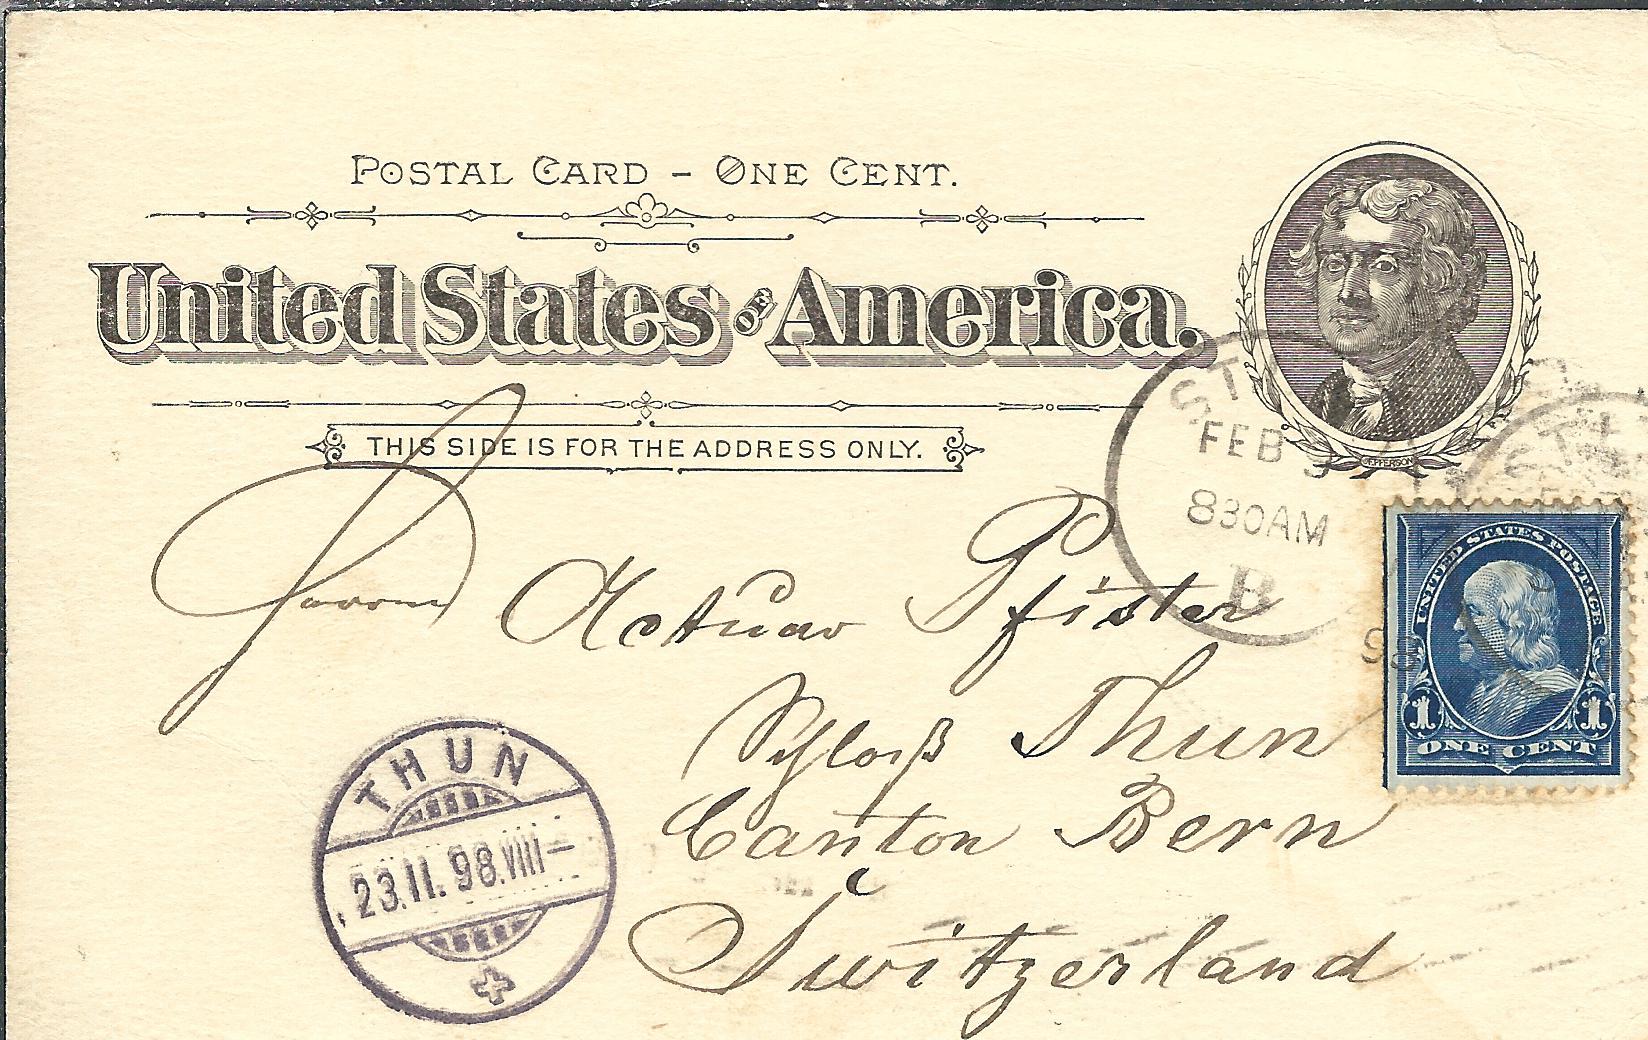 POSTAL CARD - ONE CENT.
United States OF America.
THIS SIDE IS FOR THE ADDRESS ONLY.
JEFFERSON
FEB
830AM
B
98
UNITED STATES POSTAGE
1 1
ONE CENT
Herrn
Actuar Pfister
Schloß Thun
Canton Bern
Switzerland
THUN
23.II.98.VIII-